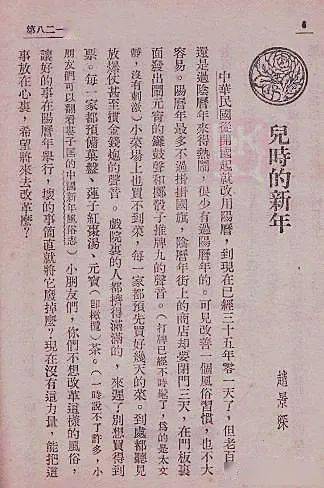 第八二一
兒時的新年
趙景深
中華民國從開國起就改用陽曆，到現在已經三十五年零一天了，但老百
還是過陰曆年來得熱鬧，很少有過陽曆年的。可見改善一個風俗習慣，也不大
易。陽曆年最多不過掛掛國旗，陰曆年街上的商店却要閉門三天，在門板裏
面發出鬧元宵的鑼鼓聲和擲骰子推牌九的聲音。（打牌已經不時髦了，爲的是太文
靜，沒有刺激）小菜場上也買不到菜，每一家都預先買好幾天的菜。到處都聽見
放爆仗甚至摜金錢炮的聲音。戲院裏的人都擠得滿滿的，來遲了別想買得到
票。每一家都預備菓盤、蓮子紅棗湯、元寶（即橄欖）茶。（一時說不了許多，小
朋友們可以翻看婁子匡的中國新年風俗志）小朋友們，你們不想改革這樣的風俗，
讓好的事在陽曆年舉行，壞的事簡直就將它廢掉麼？現在沒有這力量，能把這
事放在心裏，希望將來去改革麼？